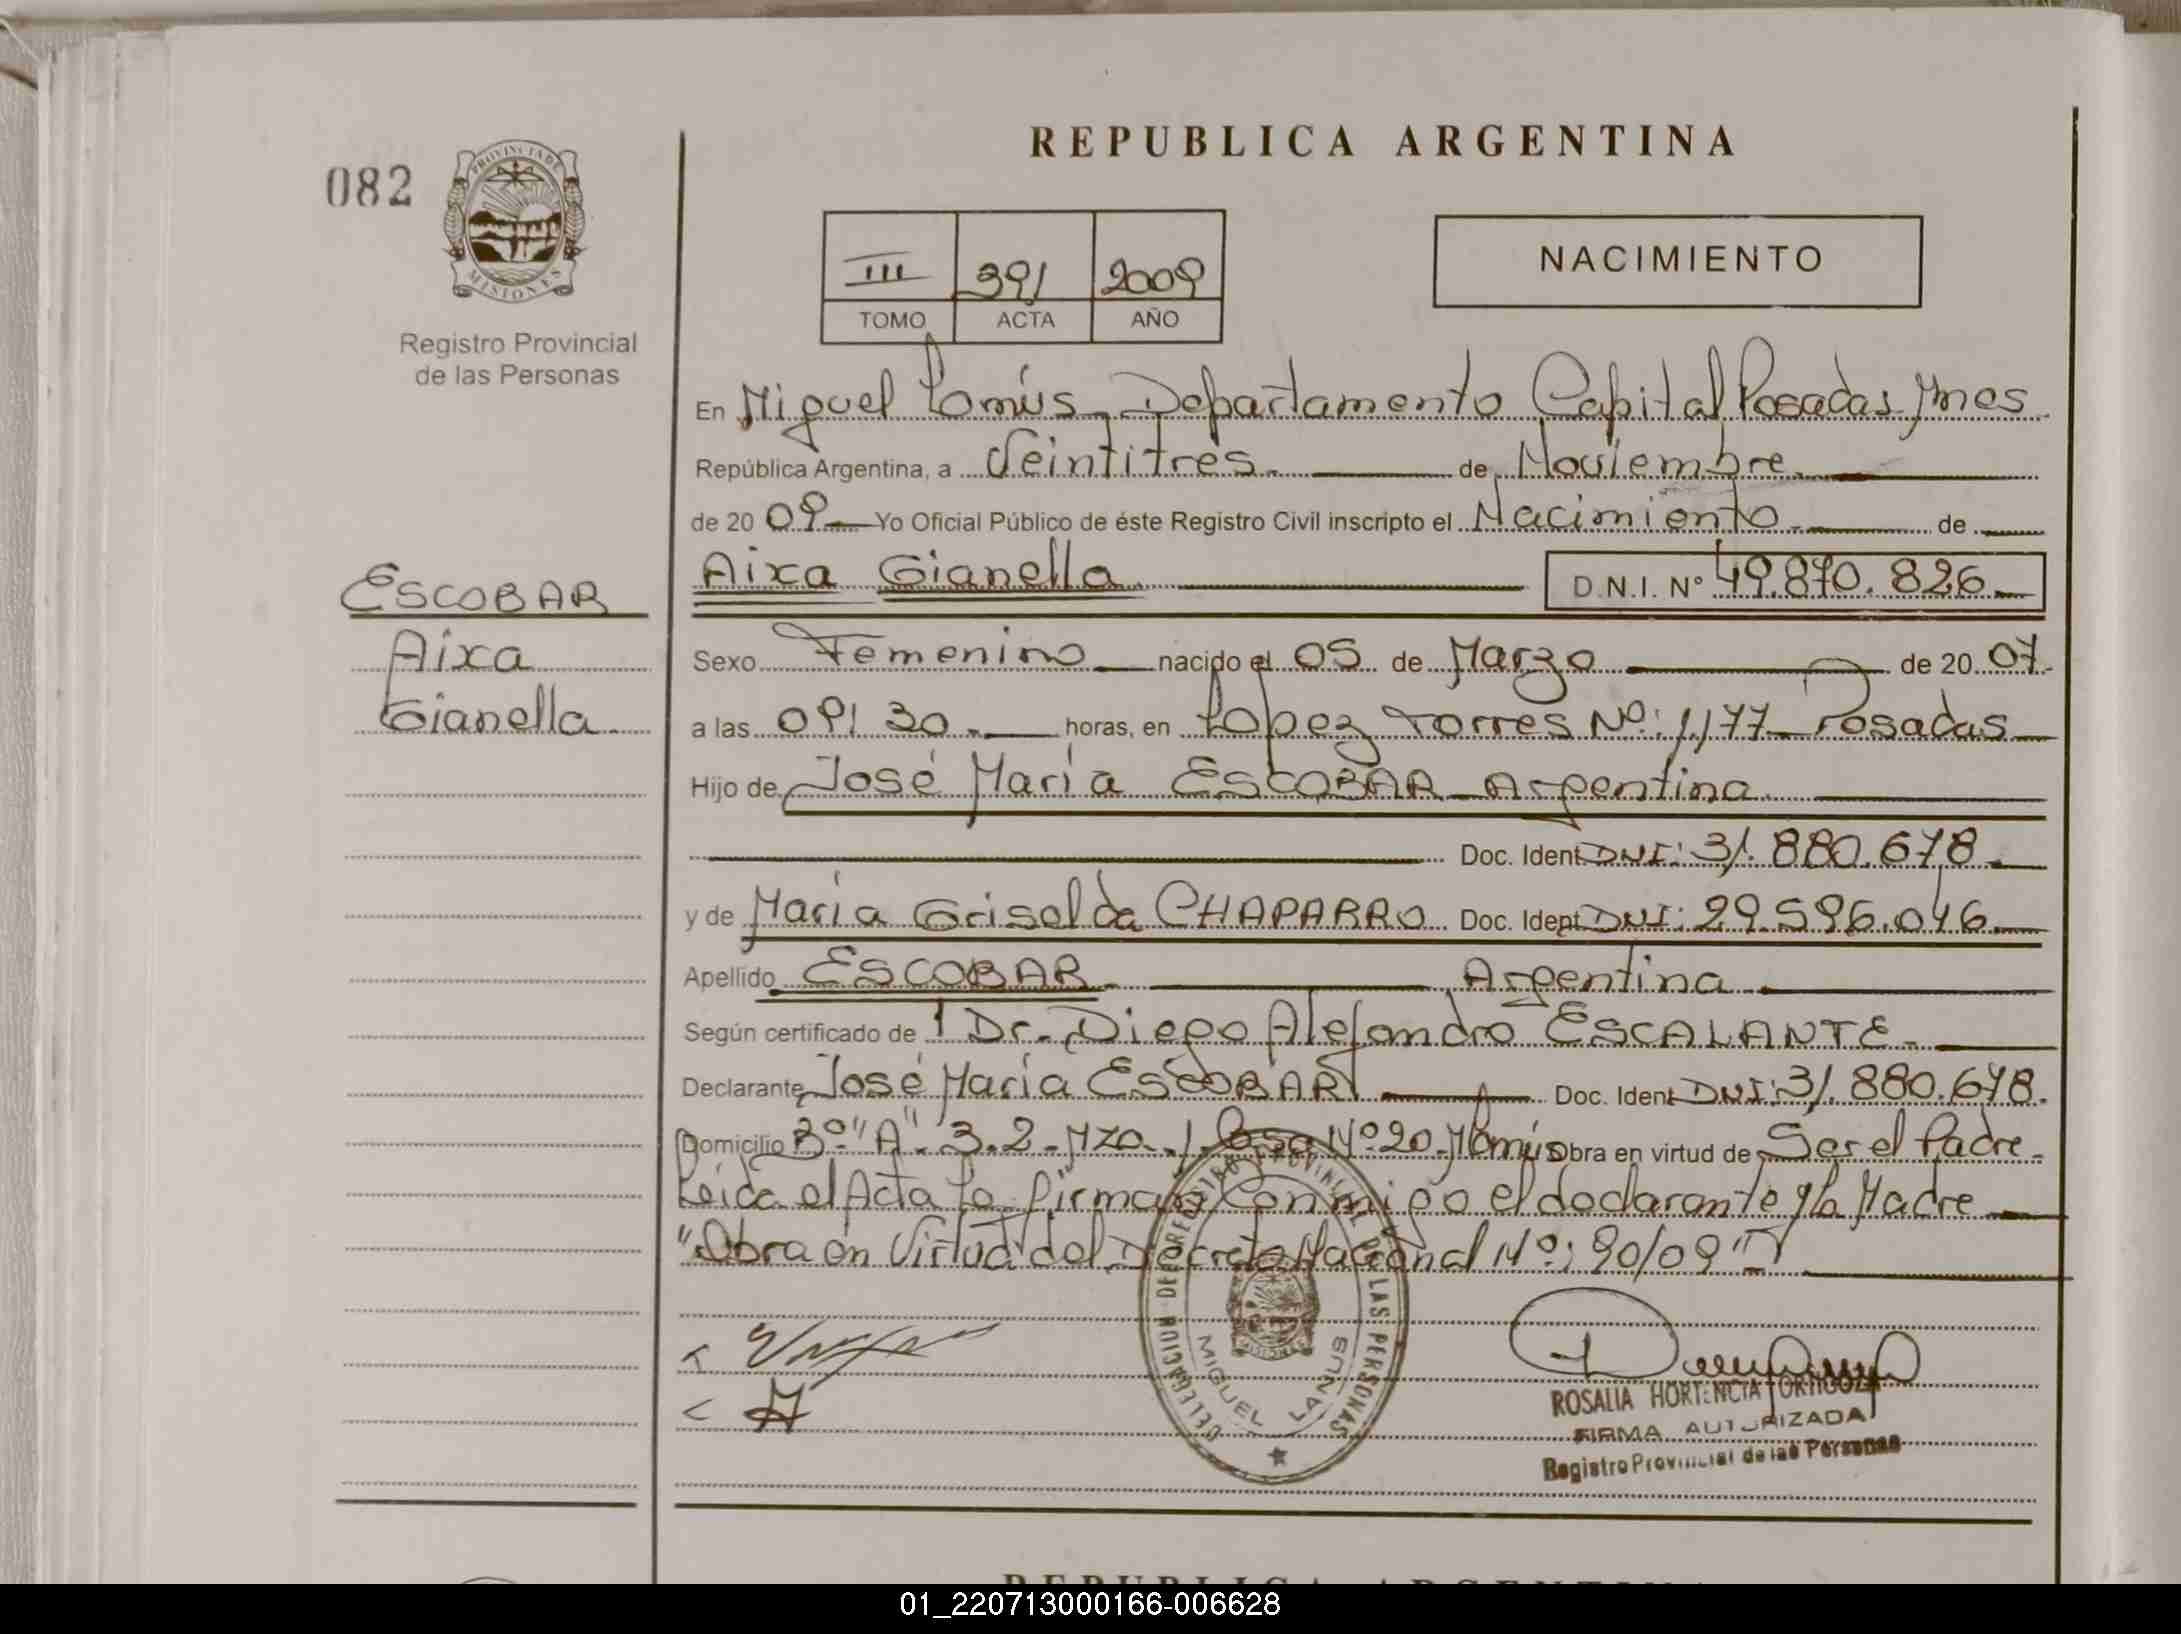 REPUBLICA ARGENTINA
082
PROVINCIA DE MISIONES
Registro Provincial
de las Personas
III 391 2009
TOMO ACTA AÑO
NACIMIENTO
En Miguel Lanús Departamento Capital Posadas Mnes
República Argentina, a Veintitres de Noviembre
de 20 09 Yo Oficial Público de éste Registro Civil inscripto el Nacimiento de
Aixa Gianella D.N.I. Nº 49.870.826
ESCOBAR
Aixa
Gianella
Sexo Femenino nacido el 05 de Marzo de 20 07
a las 09:30 horas, en Lopez Torres Nº: 1177 Posadas
Hijo de José María ESCOBAR Argentina
Doc. Ident DNI: 31.880.678
y de María Griselda CHAPARRO Doc. Ident DNI: 29.596.046
Apellido ESCOBAR Argentina
Según certificado de Dr. Diego Alejandro ESCALANTE
Declarante José María ESCOBAR Doc. Ident DNI: 31.880.678.
Domicilio 3º "A" 3.2 Mza. 1 Casa Nº 20 Obra en virtud de Ser el Padre
Leida el Acta la firman conmigo el declarante y la Madre
"Obra en Virtud del Decreto Nacional Nº: 90/09"
DELEGACION DEL REGISTRO PROVINCIAL DE LAS PERSONAS
MIGUEL LANUS
MISIONES
ROSALIA HORTENCIA ORTIGOZA
FIRMA AUTORIZADA
Registro Provincial de las Personas
REPUBLICA ARGENTINA
01_220713000166-006628